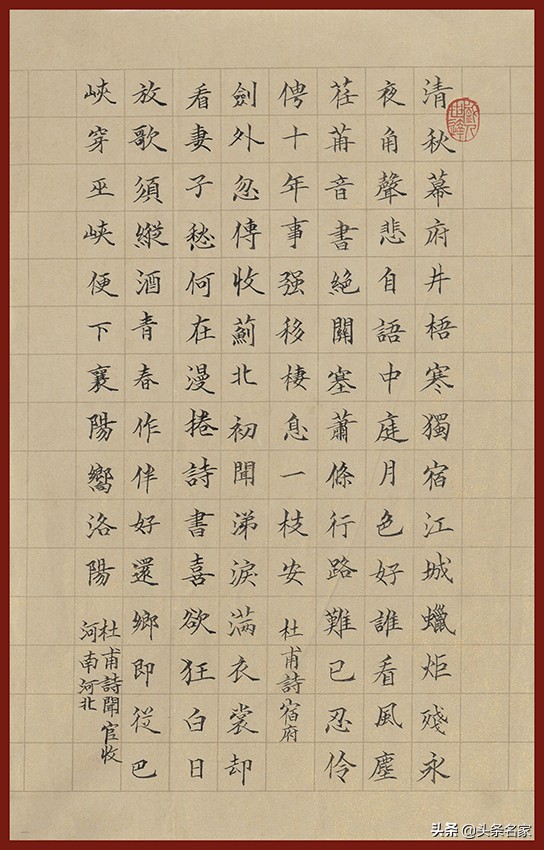 清秋幕府井梧寒獨宿江城蠟炬殘永
夜角聲悲自語中庭月色好誰看風塵
荏苒音書絕關塞蕭條行路難已忍伶
俜十年事强移棲息一枝安
杜甫詩宿府
劍外忽傳收薊北初聞涕淚满衣裳却
看妻子愁何在漫捲詩書喜欲狂白日
放歌須縱酒青春作伴好還鄉即從巴
峽穿巫峽便下襄陽嚮洛陽
杜甫詩聞官收
河南河北
头条 @头条名家